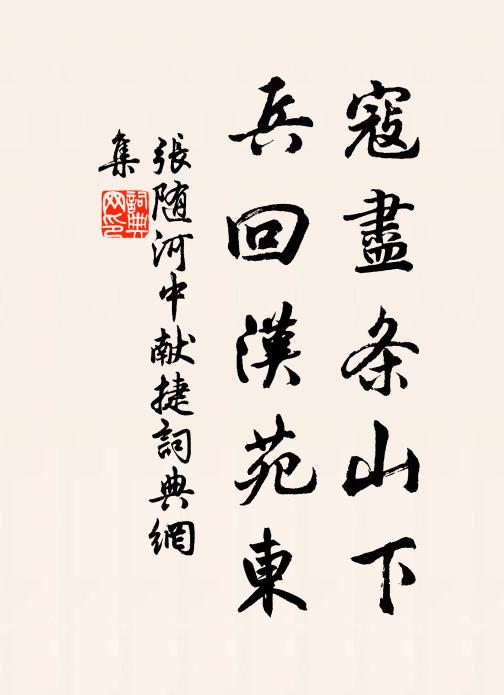 寇盡条山下
兵回漢苑東
張随河中献捷詞典網
集
詞典网印